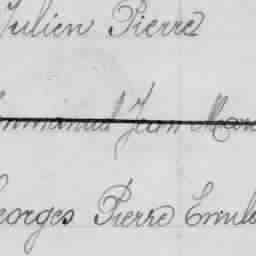 Julien Pierre
Emmanuel Jean Marc
Georges Pierre Emile